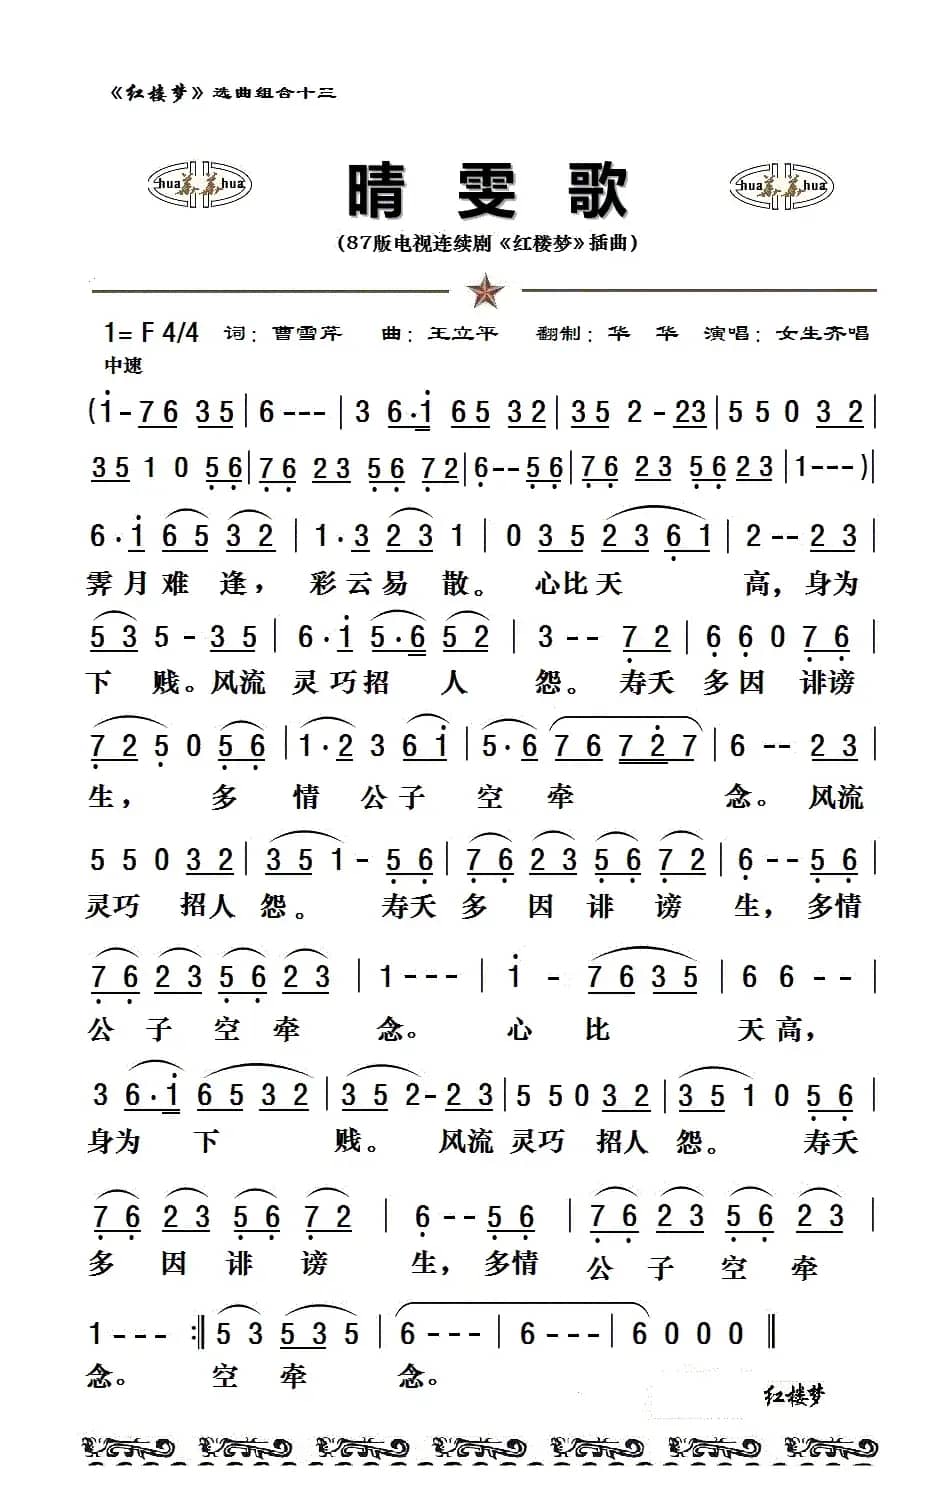 《红楼梦》选曲组合十三
hua 华华 hua
晴雯歌
hua 华华 hua
(87版电视连续剧《红楼梦》插曲)
1= F 4/4 词：曹雪芹 曲：王立平 翻制：华 华 演唱：女生齐唱
中速
(1 - 7 6 3 5 | 6 - - - | 3 6 · 1 6 5 3 2 | 3 5 2 - 2 3 | 5 5 0 3 2 |
3 5 1 0 5 6 | 7 6 2 3 5 6 7 2 | 6 - - 5 6 | 7 6 2 3 5 6 2 3 | 1 - - - ) |
6 · 1 6 5 3 2 | 1 · 3 2 3 1 | 0 3 5 2 3 6 1 | 2 - - 2 3 |
霁月难逢，彩云易散。心比天高，身为
5 3 5 - 3 5 | 6 · 1 5 · 6 5 2 | 3 - - 7 2 | 6 6 0 7 6 |
下贱。风流灵巧招人怨。寿夭多因诽谤
7 2 5 0 5 6 | 1 · 2 3 6 1 | 5 · 6 7 6 7 2 7 | 6 - - 2 3 |
生，多情公子空牵念。风流
5 5 0 3 2 | 3 5 1 - 5 6 | 7 6 2 3 5 6 7 2 | 6 - - 5 6 |
灵巧招人怨。寿夭多因诽谤生，多情
7 6 2 3 5 6 2 3 | 1 - - - | 1 - 7 6 3 5 | 6 6 - - |
公子空牵念。心比天高，
3 6 · 1 6 5 3 2 | 3 5 2 - 2 3 | 5 5 0 3 2 | 3 5 1 0 5 6 |
身为下贱。风流灵巧招人怨。寿夭
7 6 2 3 5 6 7 2 | 6 - - 5 6 | 7 6 2 3 5 6 2 3 |
多因诽谤生，多情公子空牵
1 - - - :‖ 5 3 5 3 5 | 6 - - - | 6 - - - | 6 0 0 0 ‖
念。空牵念。
红楼梦